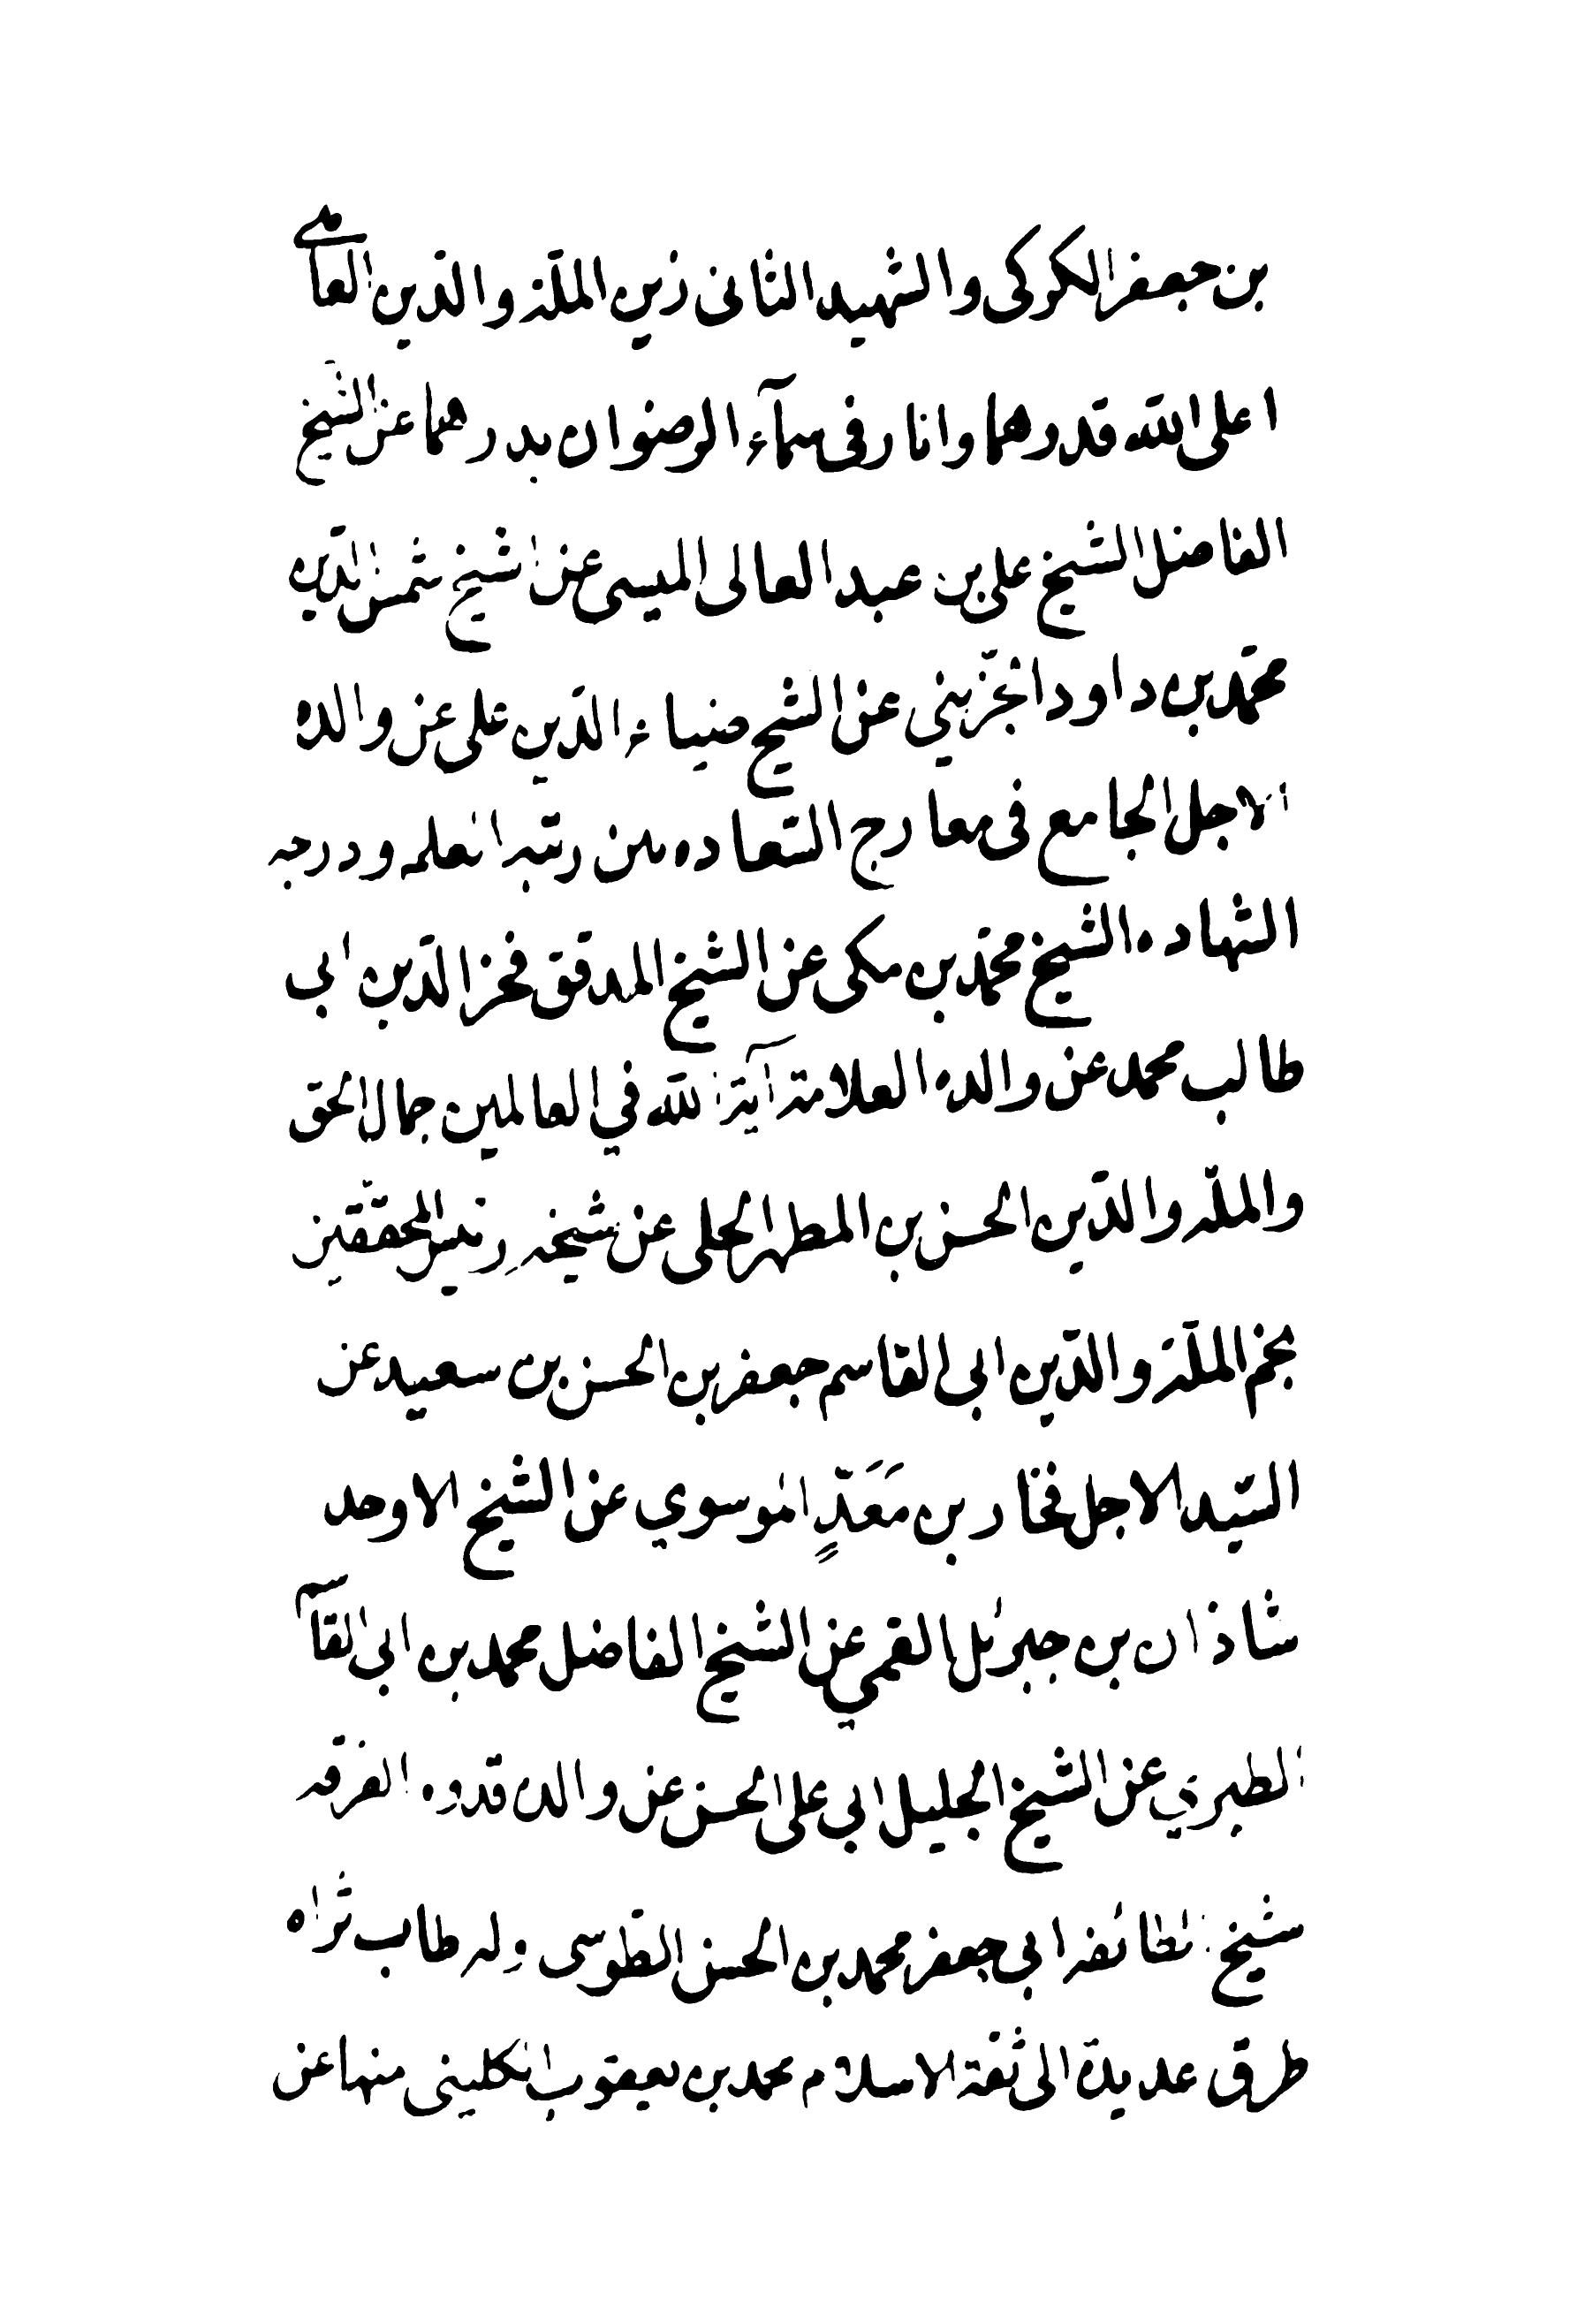 بن جعفر الكركى والشهيد الثانى زين الملة والدين العاملى
اعلى الله قدرهما وانار فى سمآء الرضوان بدرهما عن الشيخ
الفاضل الشيخ على بن عبد العالى الميسى عن الشيخ شمس الدين
محمّد بن داود الجزّينى عن الشيخ ضياء الدين على عن والده
الاجل الجامع فى معارج السّعاده من رتبة العلم ودرجه
الشهاده الشيخ محمّد بن مكى عن الشيخ المدقق فخر الدّين ابى
طالب محمد عن والده العلامة آية الله في العالمين جمال الحق
والملّة والدّين الحسن بن المطهر الحلى عن شيخه رئيس المحققين
نجم الملّة والدّين ابى القاسم جعفر بن الحسن بن سعيد عن
السّيد الاجل فخار بن مَعَدٍّ الموسوي عن الشيخ الاوحد
شاذان بن جبرئل القمي عن الشيخ الفاضل محمد بن ابى القآ
الطبري عن الشيخ الجليل ابي على الحسن عن والده قدوه الفرقه
شيخ الطائفة ابي جعفر محمد بن الحسن الطوسى وله طاب ثراه
طرق عديدة الى ثقة الاسلام محمد بن يعقوب الكلينى منها عن